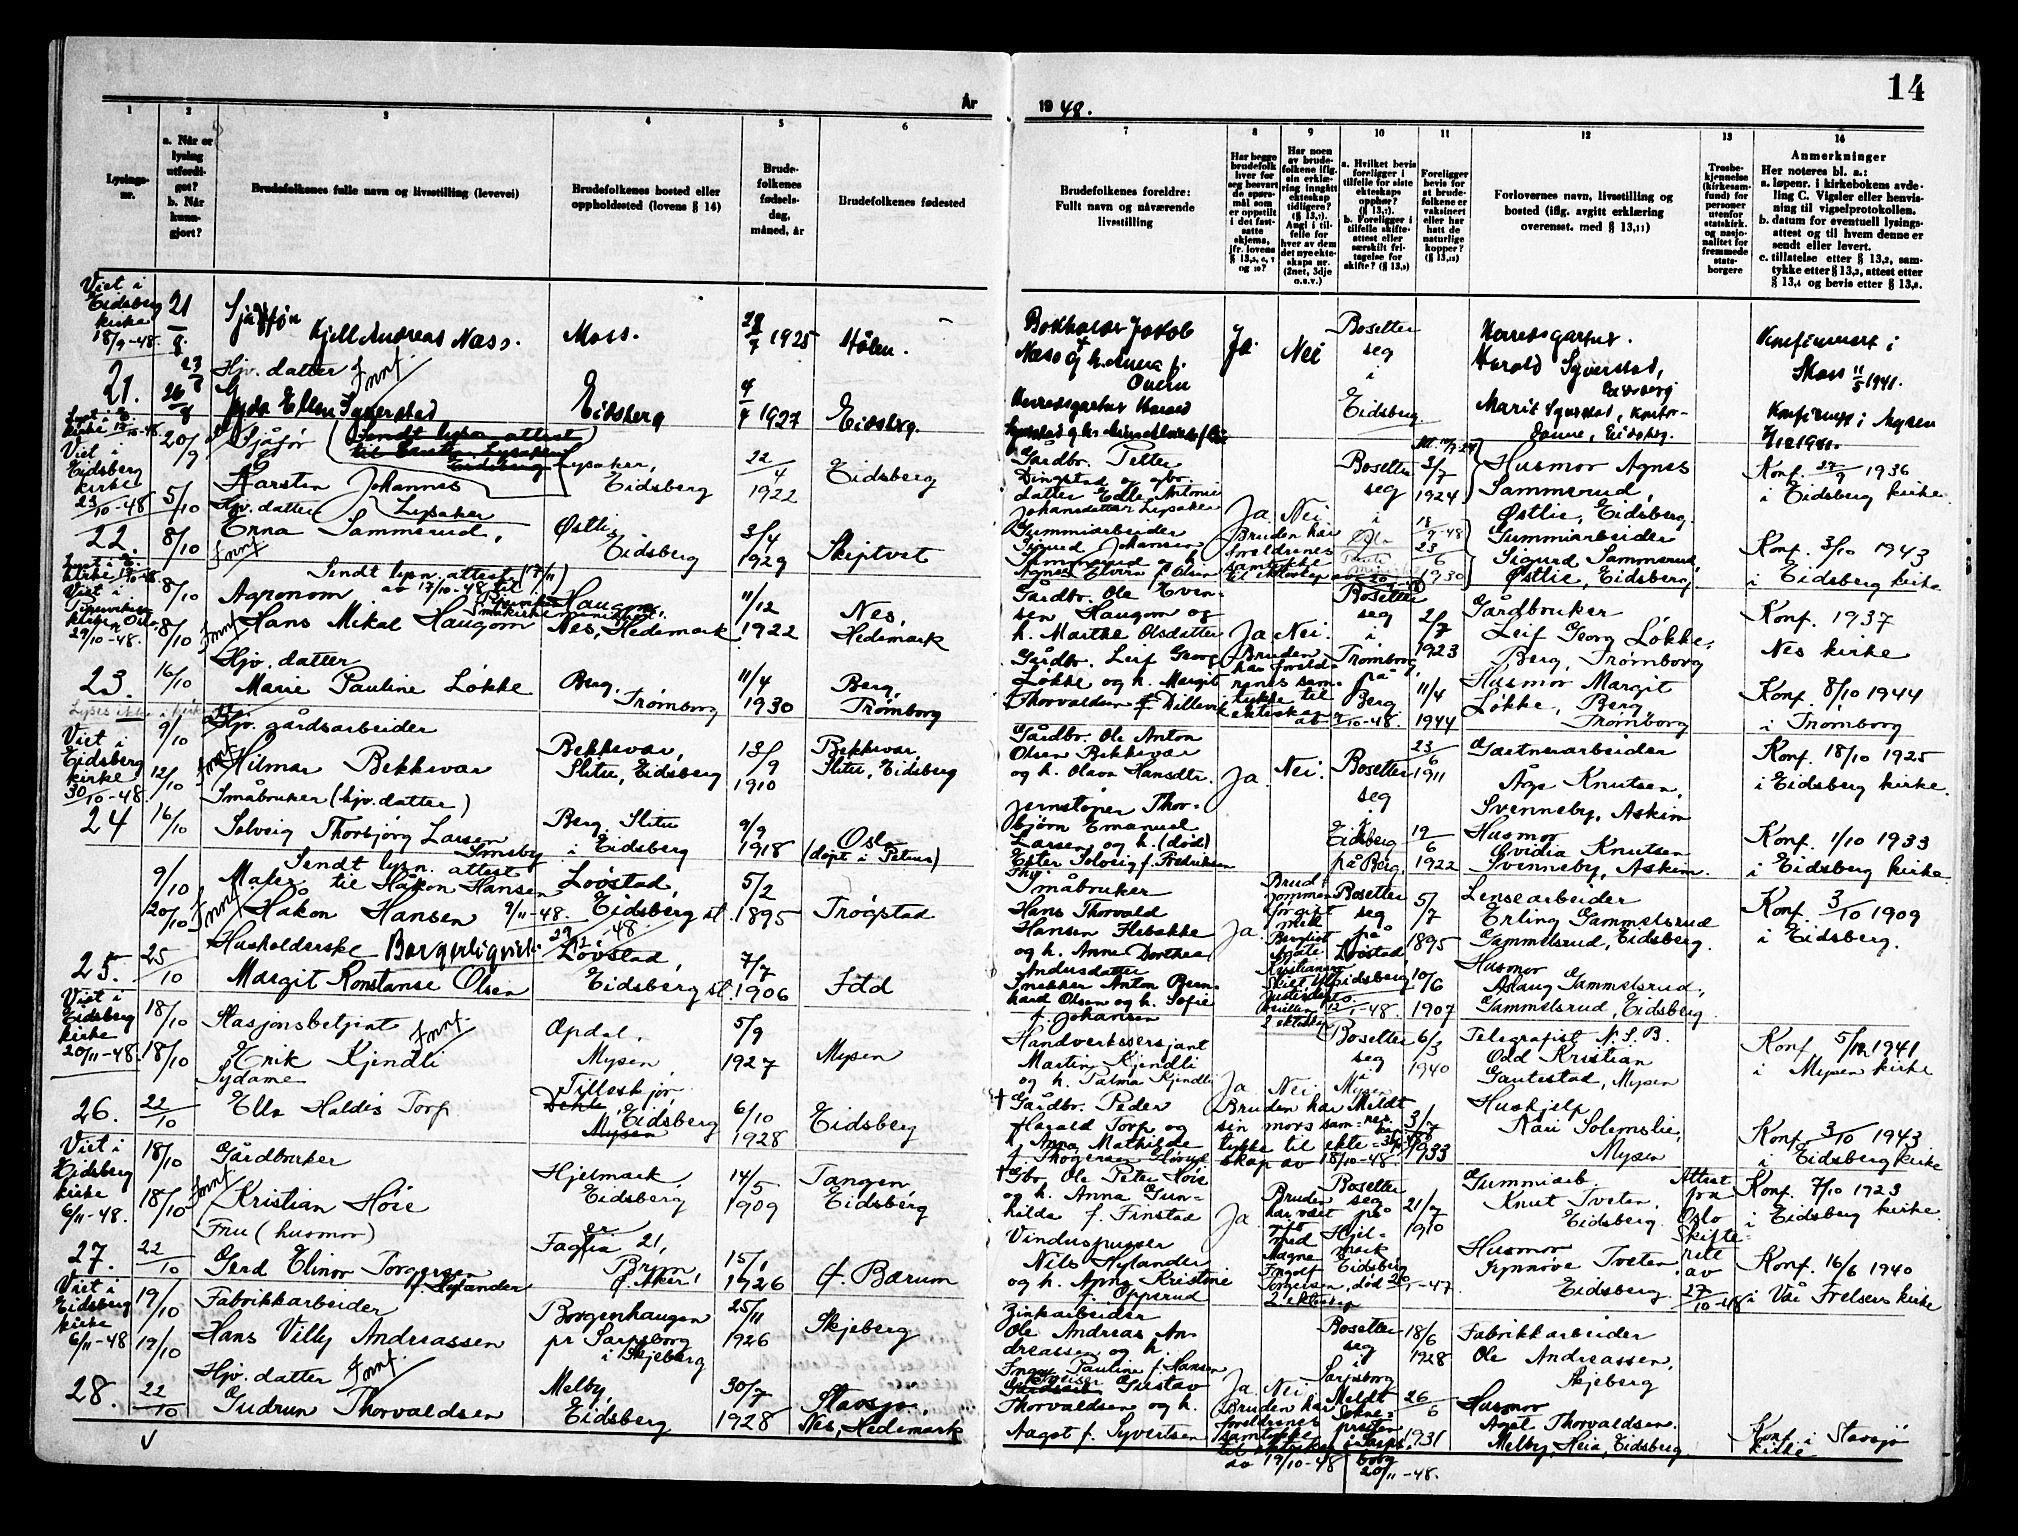 14
År
19 48.
1
2
3
4
5
6
7
8
9
10
11
12
13
14
Lysings-
nr.
a. Når er
lysing
utferdi-
get?
b. Når
kunn-
gjort?
Brudefolkenes fulle navn og livsstilling (levevei)
Brudefolkenes bosted eller
oppholdssted (lovens § 14)
Brude-
folkenes
fødsels-
dag,
måned, år
Brudefolkenes fødested
Brudefolkenes foreldre:
Fullt navn og nåværende
livsstilling
Har begge
brudefolk
hver for
seg besvart
de spørs-
mål som
er oppstilt
i det fast-
satte
skjema,
jfr. lovens
§ 13,5, 6, 7
og 10?
Har noen
av brude-
folkene iflg.
sin erklæ-
ring inngått
ekteskap
tidligere?
(§ 13,7).
Angi i til-
felle for
hver av dem
det nye ekte-
skaps nr.
(2net, 3dje
o.s.v.)
a. Hvilket bevis
foreligger i
tilfelle for siste
ekteskaps
opphør?
(§ 13,7).
b. Foreligger i
tilfelle skifte-
attest eller
særskilt fri-
tagelse for
skifte? (§ 13,8)
Foreligger
bevis for
at brude-
folkene er
vaksinert
eller har
hatt de
naturlige
kopper?
(§ 13,12)
Forlovernes navn, livsstilling og
bosted (iflg. avgitt erklæring
overensst. med § 13,11)
Trosbe-
kjennelse
(kirkesam-
fund) for
personer
utenfor
statskirk.
og nasjo-
nalitet for
fremmede
stats-
borgere
Anmerkninger
Her noteres bl. a.:
a. løpenr. i kirkebokens avde-
ling C. Vigsler eller henvis-
ning til vigselprotokollen.
b. datum for eventuell lysings-
attest og til hvem denne er
sendt eller levert.
c. tillatelse etter § 13,2, sam-
tykke etter § 13,3, attest etter
§ 13,4 og bevis etter § 13,8.
Viet i
Eidsberg
kirke
18/9-48
21.
21/8
Kjell Andreas Næss.
Moss.
1925
Hølen.
Bokholder Jakob
Ja
Nei
Bosetter
seg
i
Eidsberg
Herredsgartner
Harald Syverstad,
Eidsberg
Konfirmert i
Moss 11/5 1941.
Hjv. datter
Ellen Syverstad
Eidsberg
4/4 1927
Eidsberg.
Herredsgartner Harald
Marit Syverstad, kontor-
dame, Eidsberg.
Konfirmert i Mysen
Viet i
Eidsberg
kirke
23/10-48
22.
20/9
5/10
8/10
8/10
Sjåfør
Karsten Johannes
Lysaker
Lysaker,
Eidsberg
22/4
1922
Eidsberg
Gårdbr. Petter
Dingstad og
datter Edle Antonie
Johansdatter Lysaker
Ja
Nei
Bosetter
seg
i
3/7
1924
Husmor Agnes
Sammerud,
Østlie, Eidsberg.
Konf. 27/9 1936
i Eidsberg kirke
Hjv. datter
Erna Sammerud,
Østlie
Eidsberg
3/4
1929
Skiptvet
Gummiarbeider
Sigurd Johansen
Sammerud og
Agnes Elvira f. Olsen
Bruden har
foreldrenes
samtykke
23/6
1930
Gummiarbeider
Sigurd Sammerud,
Østlie, Eidsberg.
Konf. 3/10 1943
i Eidsberg kirke
Viet i
kirke Oslo
29/10-48.
23.
8/10
16/10
Sendt lysn. attest
av 17/10-48 til
Agronom
Hans Mikal Haugom
Haugom,
Nes, Hedemark
11/12
1922
Nes,
Hedemark
Gårdbr. Ole Even-
sen Haugom og
h. Marthe Olsdatter
Ja
Nei
Bosetter
seg
i
Tromborg,
på
Berg
2/7
1923
Gårdbruker
Leif Georg Løkke,
Berg, Trømborg
Konf. 1937
Nes kirke
Hjv. datter
Marie Pauline Løkke
Berg,
Trømborg
11/4
1930
Berg,
Trømborg
Gårdbr. Leif Georg
Løkke og h. Margit
Thorvaldsen f. Dillevik
Bruden
har foreld-
renes sam-
tykke til
ekteskap
11/4
1944
Husmor Margit
Løkke, Berg
Trømborg
Konf. 8/10 1944
i Trømborg
Viet i
Eidsberg
kirke
30/10-48.
24
9/10
12/10
16/10
Hjv. gårdsarbeider
Hilmar Bekkevar
Bekkevar,
Slitu, Eidsberg
13/9
1910
Bekkevar,
Slitu, Eidsberg
Gårdbr. Ole Anton
Olsen Bekkevar
og h. Olava Hansdtr.
Ja
Nei.
Bosetter
seg
i
Eidsberg
på Berg.
23/6
1911
Gartnerarbeider
Åge Knutsen,
Svenneby, Askim
Konf. 18/10 1925
i Eidsberg kirke.
Småbruker (hjv. datter)
Solveig Thorbjørg Larsen
Berg, Slitu
i Eidsberg
9/9
1918
Oslo
Jernstøper Thor-
bjørn Emanuel
Larsen og h. (død)
Ester Solveig f. Fredriksen
19/6
1922
Husmor
Ovidia Knutsen
Svenneby, Askim.
Konf. 1/10 1933
i Eidsberg kirke.
25.
9/10
20/10
25/10
Sendt lysn. attest
Maler til Håkon Hansen
Håkon Hansen 9/11-48.
Løvstad,
Eidsberg st.
5/2
1895
Trøgstad
Småbruker
Hans Thorvald
Hansen Flebakke
og h. Anne Dorthea
Andersdatter
Ja.
Brud-
gommen
før gift
Bosetter
seg
på
Løvstad
Eidsberg
5/7
1895
Lensearbeider
Erling Gammelsrud
Gammelsrud, Eidsberg.
Konf. 3/10 1909
i Eidsberg.
Husholderske Borgerlig viet
Margit Konstanse Olsen
Løvstad,
Eidsberg st.
7/7
1906
Idd
Snekker Anton Bern-
hard Olsen og h. Sofie
f. Johansen
2 ekteskap
10/6
1907
Husmor
Aslaug Gammelsrud,
Gammelsrud, Eidsberg.
Viet i
Eidsberg
kirke
20/11-48.
26.
18/10
18/10
22/10
Stasjonsbetjent
Erik Kjendli
Opdal,
Mysen
5/9
1927
Mysen
Handverkssersjant
Martin Kjendli
og h. Palma Kjendli
Ja
Nei
Bosetter
seg
i
Mysen
6/3
1940
Telegrafist N.S.B.
Odd Kristian
Gautestad, Mysen
Konf. 5/10 1941
i Mysen kirke
Sydame
Ella Haldis Torp
Eidsberg
Mysen
6/10
1928
Eidsberg
Gårdbr. Peder
Harald Torp og
h. Anna Mathilde
Bruden har
sin mors sam-
tykke til ekte-
skap av 18/10-48.
3/7
1933
Huskjelp
Kari Solemslie,
Mysen
Konf. 3/10 1943
i Eidsberg kirke
Viet i
Eidsberg
kirke
6/11-48.
27.
18/10
18/10
22/10
Gårdbruker
Kristian Høie
Hjelmark,
Eidsberg
14/5
1909
Tangen
Eidsberg
Gbr. Ole Peter Høie
og h. Anna Gun-
hilda f. Finstad
Ja
Bruden
har vært
gift
med
Magne
Ingolf
Torgersen, død
2. ekteskap
Bosetter
seg
på
Hjel-
mark
Eidsberg
21/7
1910
Gummiarb.
Knut Tveten,
Eidsberg.
Attest
fra
Oslo
skifte-
rett
av
27/10-48
Konf. 7/10 1923
i Eidsberg kirke.
Fru (husmor)
Gerd Elinor Torgersen
f. Nylander
21,
Bryn
f. Aker
15/1
1926
f. Bærum
Vinduspusser
Nils Nylander
og h. Anna Kristine
f. Oppsrud
Husmor
Synnøve Tveten
Eidsberg.
Konf. 16/6 1940
i Vår Frelsers kirke
Viet i
Eidsberg
kirke
6/11-48
28.
19/10
19/10
22/10
Fabrikkarbeider
Hans Villy Andreassen
Borgenhaugen
pr Sarpsborg
i Skjeberg
25/11
1926
Skjeberg
Zinkarbeider
Ole Andreas An-
dreassen og h.
Pauline f. Hansen
Ja
Nei
Bosetter
seg
i
Sarpsborg
18/6
1928
Fabrikkarbeider
Ole Andreassen,
Skjeberg
Hjv. datter
Gudrun Thorvaldsen
Melby,
Eidsberg
30/7
1928
Stavsjø,
Nes, Hedemark
Gustav
Thorvaldsen og h.
Aagot f. Syvertsen
Bruden har
foreldrenes
samtykke
til ekteskap
av 19/10-48
Meldt
Sokne-
presten
i Sarps-
borg
20/11-48.
26/6
1931
Husmor
Aagot Thorvaldsen.
Melby, Heia, Eidsberg.
Konf. i Stavsjø
kirke